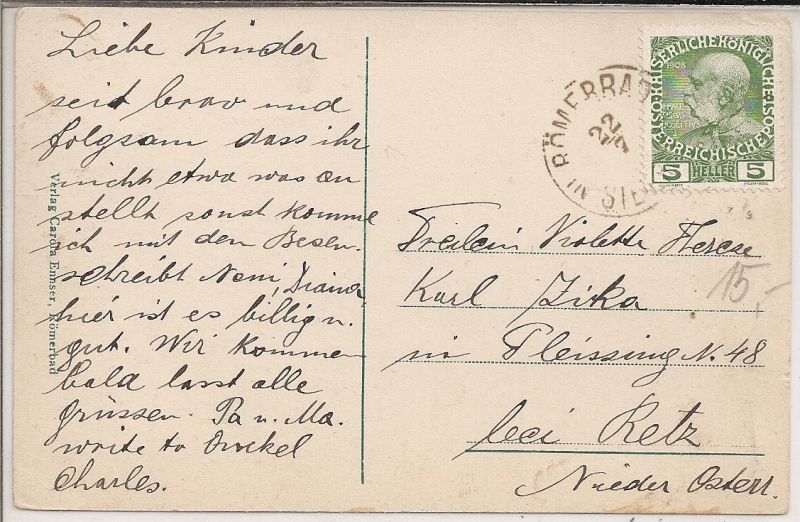 Liebe Kinder
seit brav und
folgsam dass ihr
nicht etwa was an
stellt sonst komme
ich mit den Besen.
schreibt Neni, Diana
hier ist es billig u.
gut. Wir kommen
bald lasst alle
grüssen. Pa u. Ma.
write to Onckel
Charles.
Verlag Carola Ennser, Römerbad
RÖMERBAD
IN STEI
KAISERLICHE KÖNIGLICHE
ÖSTERREICHISCHE POST
1908
5 HELLER 5
Freilein Violette Terese
Karl Zika
in Pleissing N. 48
bei Retz
Nieder Österr.
15,-